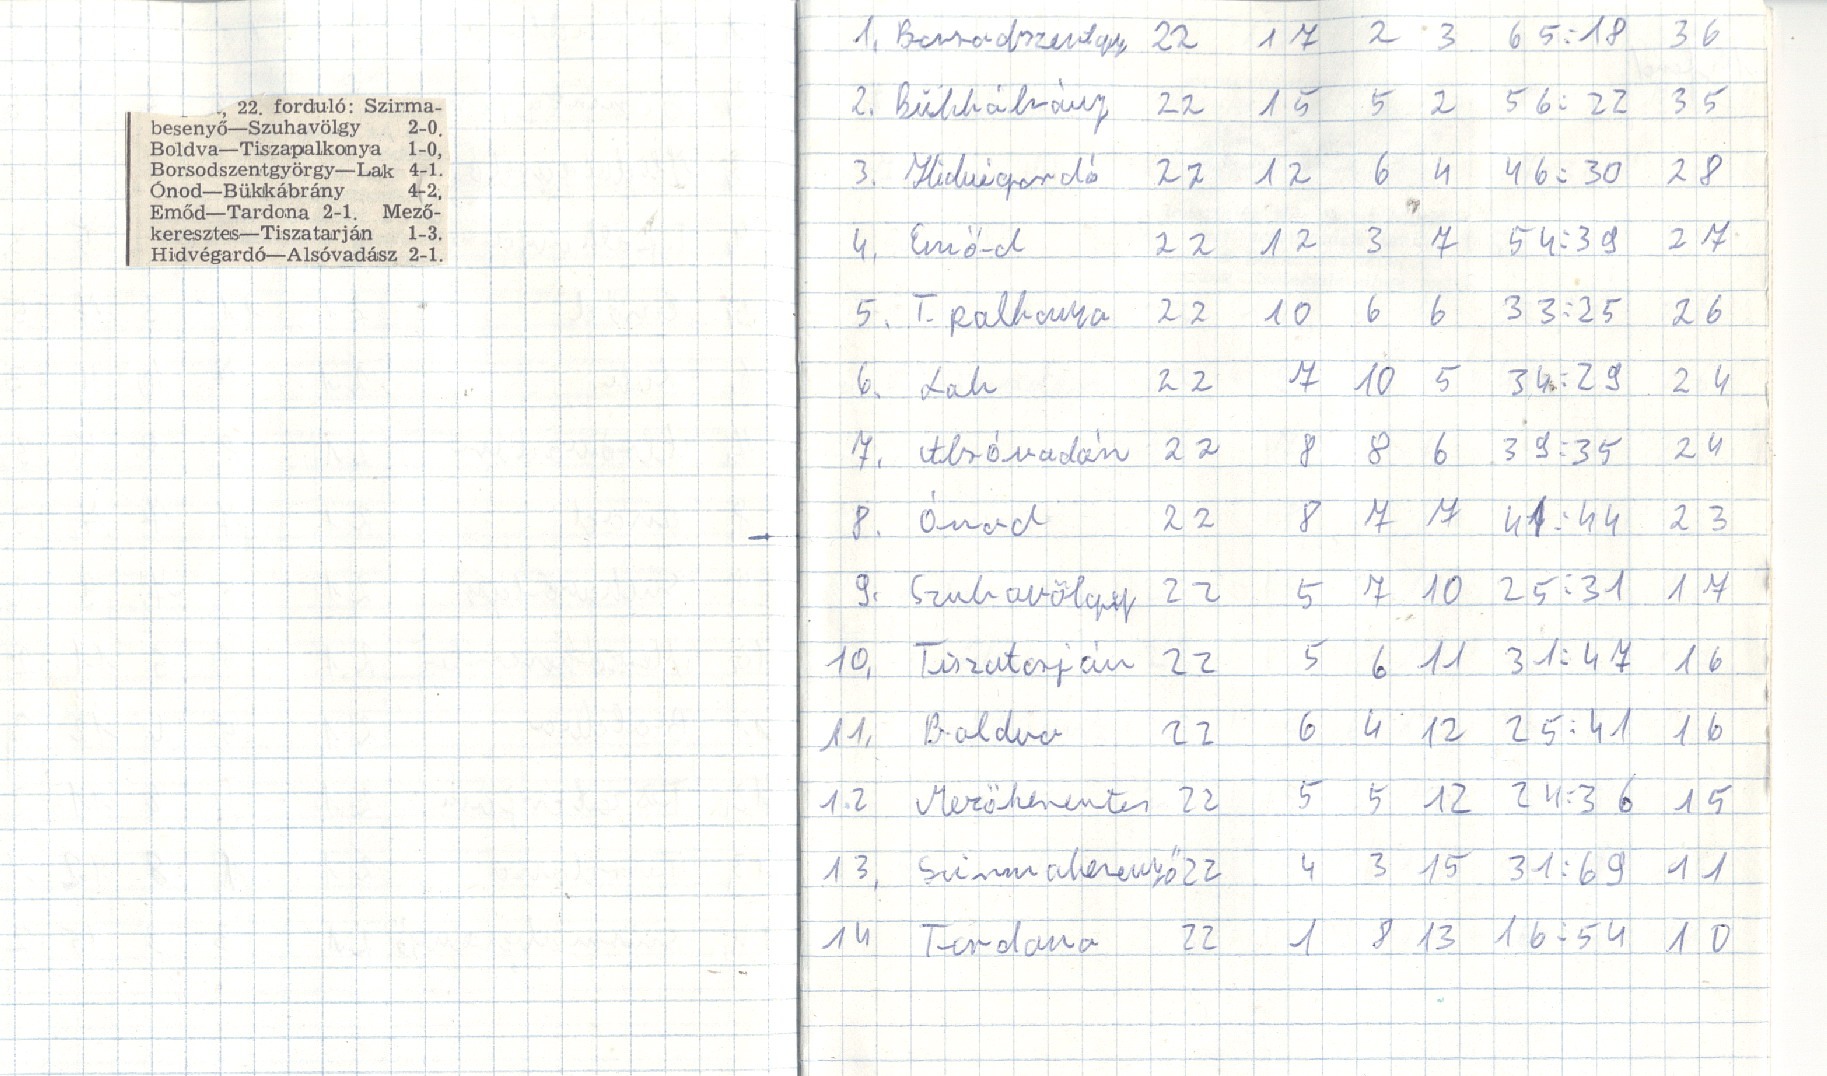 , 22. forduló: Szirma-
besenyő—Szuhavölgy 2-0.
Boldva—Tiszapalkonya 1-0,
Borsodszentgyörgy—Lak 4-1.
Ónod—Bükkábrány 4-2,
Emőd—Tardona 2-1. Mező-
keresztes—Tiszatarján 1-3.
Hidvégardó—Alsóvadász 2-1.
1. Borsodszentgy 22 17 2 3 65:18 36
2. Bükkábrány 22 15 5 2 56:22 35
3. Hidvégardó 22 12 6 4 46:30 28
4. Emőd 22 12 3 7 54:39 27
5. T. palkonya 22 10 6 6 33:25 26
6. Lak 22 7 10 5 34:29 24
7. Alsóvadász 22 8 8 6 39:35 24
8. Ónod 22 8 7 7 41:44 23
9. Szuhavölgy 22 5 7 10 25:31 17
10, Tiszatarján 22 5 6 11 31:47 16
11, Boldva 22 6 4 12 25:41 16
12 Mezőkeresztes 22 5 5 12 24:36 15
13, Szirmabesenyő 22 4 3 15 31:69 11
14 Tardona 22 1 8 13 16:54 10